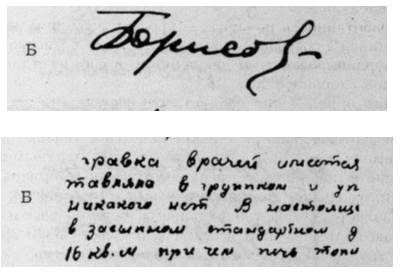 Б
Борисов
Б
травка врачей имеется
тавляла в групповом и уп
никакого нет В настояще
в засыпном стандартном д
16 кв. м при чем печь топи